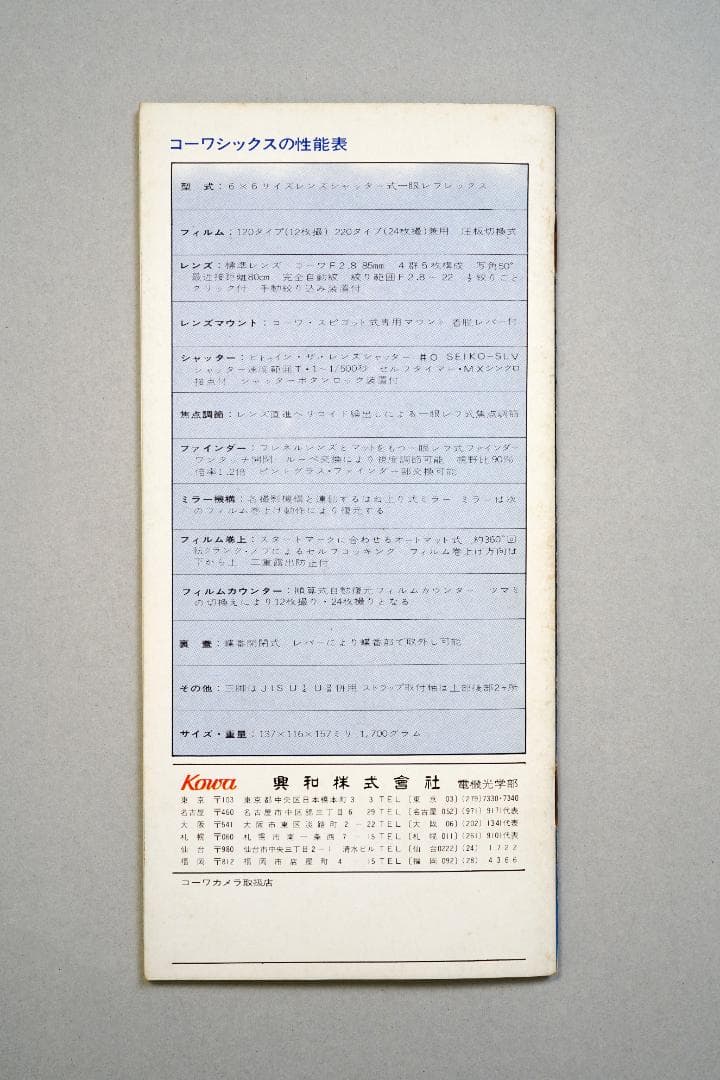 コーワシックスの性能表
型 式：6×6サイズレンズシャッター式一眼レフレックス
フィルム：120タイプ(12枚撮) 220タイプ(24枚撮)兼用 圧板切換式
レンズ：標準レンズ コーワF2.8 85mm 4群5枚構成 写角50°
最近接距離80cm 完全自動絞 絞り範囲F2.8～22 ½絞りごと
クリック付 手動絞り込み装置付
レンズマウント：コーワ・スピゴット式専用マウント 着脱レバー付
シャッター：ビトゥイン・ザ・レンズシャッター #0 SEIKO-SLV
シャッター速度範囲T・1～1/500秒 セルフタイマー・MXシンクロ
接点付 シャッターボタンロック装置付
焦点調節：レンズ直進ヘリコイド繰出しによる一眼レフ式焦点調節
ファインダー：フレネルレンズとマットをもつ一眼レフ式ファインダー
ワンタッチ開閉 ルーペ交換により視度調節可能 視野比90%
倍率1.2倍 ピントグラス・ファインダー部交換可能
ミラー機構：各撮影機構と連動するはね上り式ミラー ミラーは次
のフィルム巻上げ動作により復元する
フィルム巻上：スタートマークに合わせるオートマット式 約360°回
転クランク・ノブによるセルフコッキング フィルム巻上げ方向は
下から上 二重露出防止付
フィルムカウンター：順算式自動復元フィルムカウンター ツマミ
の切換えにより12枚撮り・24枚撮りとなる
裏 蓋：蝶番開閉式 レバーにより蝶番部で取外し可能
その他：三脚はJIS U¼ U⅜併用 ストラップ取付軸は上部後部2ヶ所
サイズ・重量：137×116×157ミリ 1,700グラム
Kowa 興和株式會社 電機光学部
東 京 〒103 東京都中央区日本橋本町3 3 TEL〔東 京 03〕(279)7330・7340
名古屋 〒460 名古屋市中区錦三丁目6 29 TEL〔名古屋 052〕(971) 9171代表
大 阪 〒541 大阪市東区淡路町2－22 TEL〔大 阪 06〕(202) 1341代表
札 幌 〒060 札幌市南一条西7－15 TEL〔札 幌 011〕(261) 9101代表
仙 台 〒980 仙台市中央三丁目2－1 清水ビル TEL〔仙 台 0222〕(24) 1722
福 岡 〒812 福岡市店屋町4 15 TEL〔福 岡 092〕(28) 4366
コーワカメラ取扱店